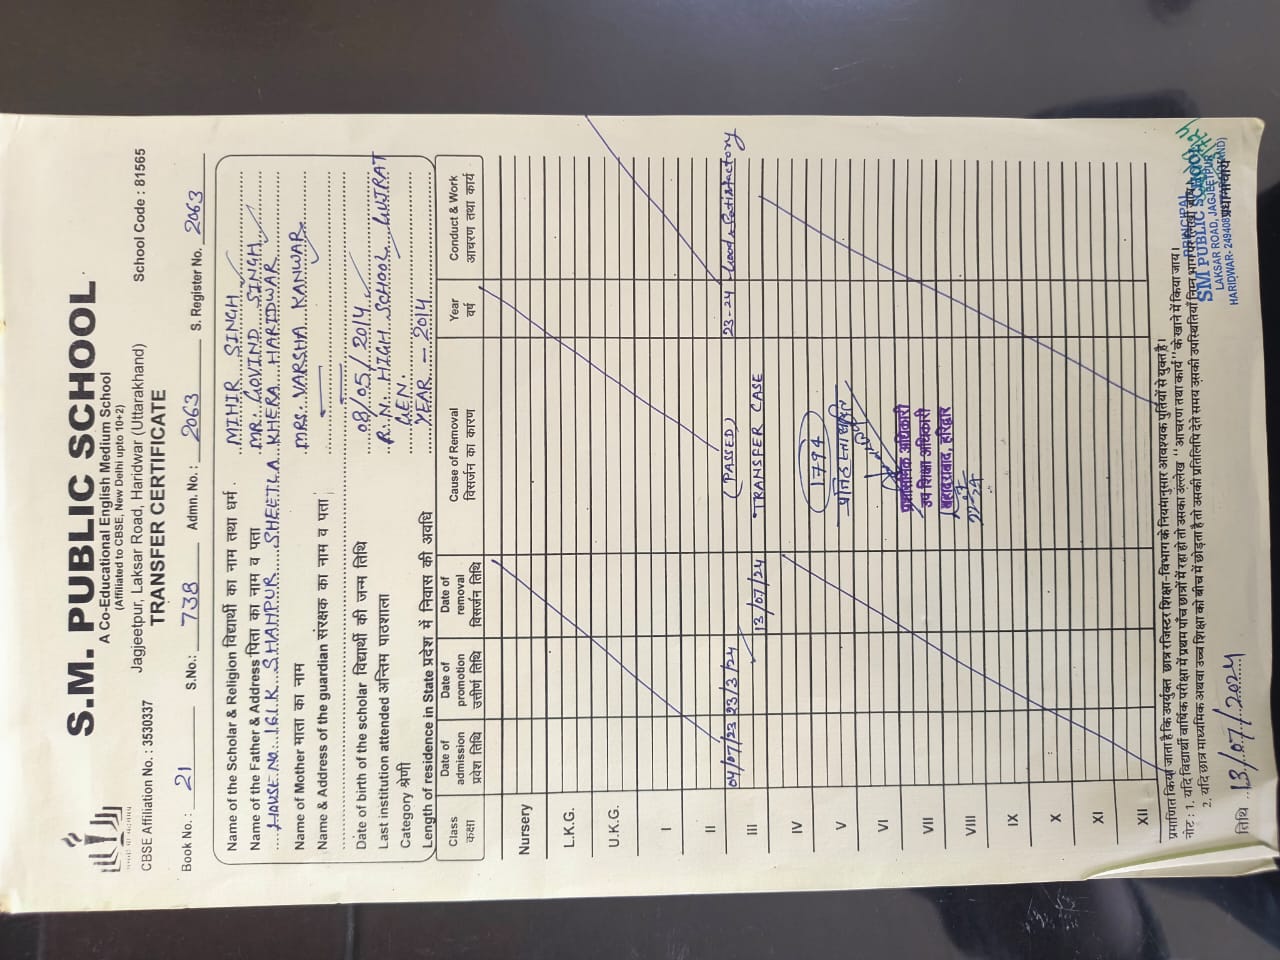 S.M. PUBLIC SCHOOL
A Co-Educational English Medium School
(Affiliated to CBSE, New Delhi upto 10+2)
CBSE Affiliation No. : 3530337 Jagjeetpur, Laksar Road, Haridwar (Uttarakhand) School Code : 81565
TRANSFER CERTIFICATE
Book No. : 21 S.No.: 738 Admn. No. : 2063 S. Register No. 2063
Name of the Scholar & Religion विद्यार्थी का नाम तथा धर्म MIHIR SINGH
Name of the Father & Address पिता का नाम व पता MR. GOVIND SINGH
HOUSE NO. 161 K SHAHPUR SHEETLA KHERA HARIDWAR
Name of Mother माता का नाम MRS. VARSHA KANWAR
Name & Address of the guardian संरक्षक का नाम व पता
Date of birth of the scholar विद्यार्थी की जन्म तिथि 08/05/2014
Last institution attended अन्तिम पाठशाला R.N. HIGH SCHOOL GUJRAT
Category श्रेणी GEN.
Length of residence in State प्रदेश में निवास की अवधि YEAR - 2014
Class Date of admission Date of promotion Date of removal Cause of Removal Year Conduct & Work
कक्षा प्रवेश तिथि उत्तीर्ण तिथि विसर्जन तिथि विसर्जन का कारण वर्ष आचरण तथा कार्य
Nursery
L.K.G.
U.K.G.
I
II
04/07/23 23/3/24 (PASSED) 23-24 Good & Satisfactory
III 13/07/24 TRANSFER CASE
IV 1794
V
VI
VII
प्रशासनिक अधिकारी
उप शिक्षा अधिकारी
बहादराबाद, हरिद्वार
VIII
IX
X
XI
XII
प्रमाणित किया जाता है कि उपर्युक्त छात्र रजिस्टर शिक्षा-विभाग के नियमानुसार आवश्यक पूर्तियों से युक्त है।
नोट : 1. यदि विद्यार्थी वार्षिक परीक्षा में प्रथम पाँच छात्रों में रहा हो तो उसका उल्लेख "आचरण तथा कार्य" के खाने में किया जाय।
2. यदि छात्र माध्यमिक अथवा उच्च शिक्षा को बीच में छोड़ता है तो उसकी प्रतिलिपि देते समय उसकी उपस्थितियाँ निम्न भाग पर लिखी जाय।
तिथि 13/07/2024
PRINCIPAL
SM PUBLIC SCHOOL
LAKSAR ROAD, JAGJEETPUR
HARIDWAR- 249408
प्रधानाचार्य